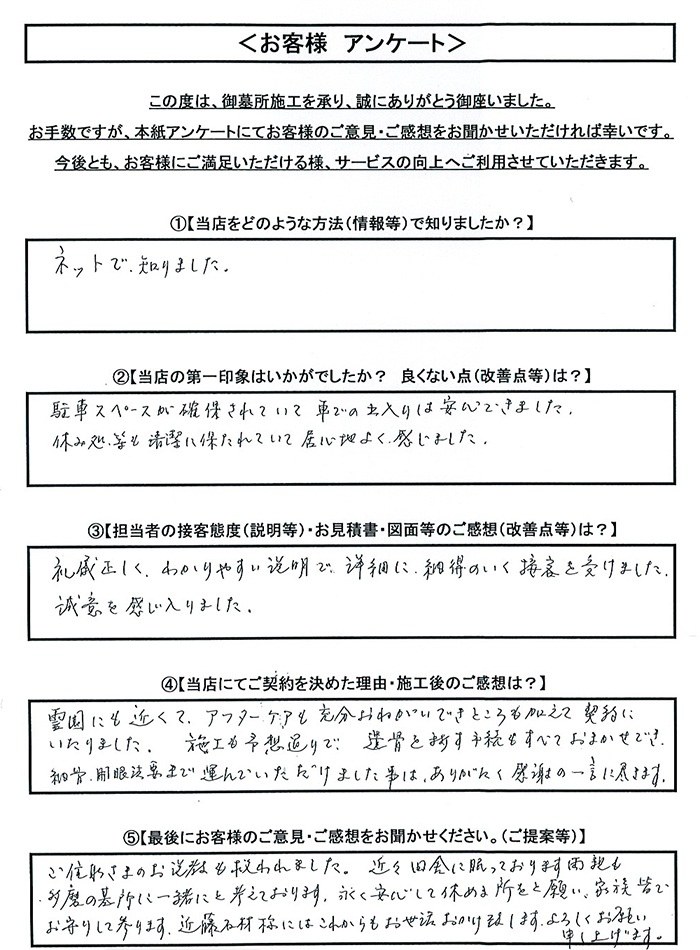 ＜お客様　アンケート＞
この度は、御墓所施工を承り、誠にありがとう御座いました。
お手数ですが、本紙アンケートにてお客様のご意見・ご感想をお聞かせいただければ幸いです。
今後とも、お客様にご満足いただける様、サービスの向上へご利用させていただきます。
①【当店をどのような方法（情報等）で知りましたか？】
ネットで、知りました。
②【当店の第一印象はいかがでしたか？　良くない点（改善点等）は？】
駐車スペースが確保されていて車での出入りは安心できました。
休み処、等も清潔に保たれていて居心地よく感じました。
③【担当者の接客態度（説明等）・お見積書・図面等のご感想（改善点等）は？】
礼儀正しく、わかりやすい説明で、詳細に、納得のいく接客を受けました。
誠意を感じ入りました。
④【当店にてご契約を決めた理由・施工後のご感想は？】
霊園にも近くて、アフターケアも充分おねがいできところも加えて契約に
いたりました。　施工も予想通りで、遺骨を移す手続もすべておまかせでき、
納骨、開眼法要まで運んでいただけました事は、ありがたく感謝の一言に尽きます。
⑤【最後にお客様のご意見・ご感想をお聞かせください。（ご提案等）】
ご住職さまのお説教も救われました。近々田舎に眠っております両親も
多磨の墓所に一緒にと考えております。永く安心して休める所をと願い、家族皆で
お守りして参ります。近藤石材様にはこれからもお世話おかけ致します。よろしくお願い
申し上げます。